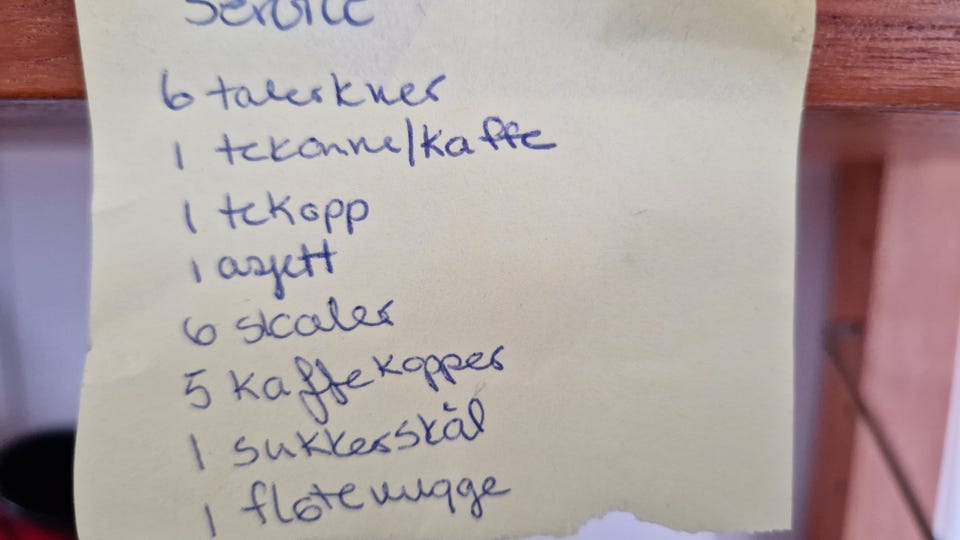 Service
6 talerkner
1 tekanne/kaffe
1 tekopp
1 asjett
6 skaler
5 kaffekopper
1 sukkerskål
1 fløtemugge